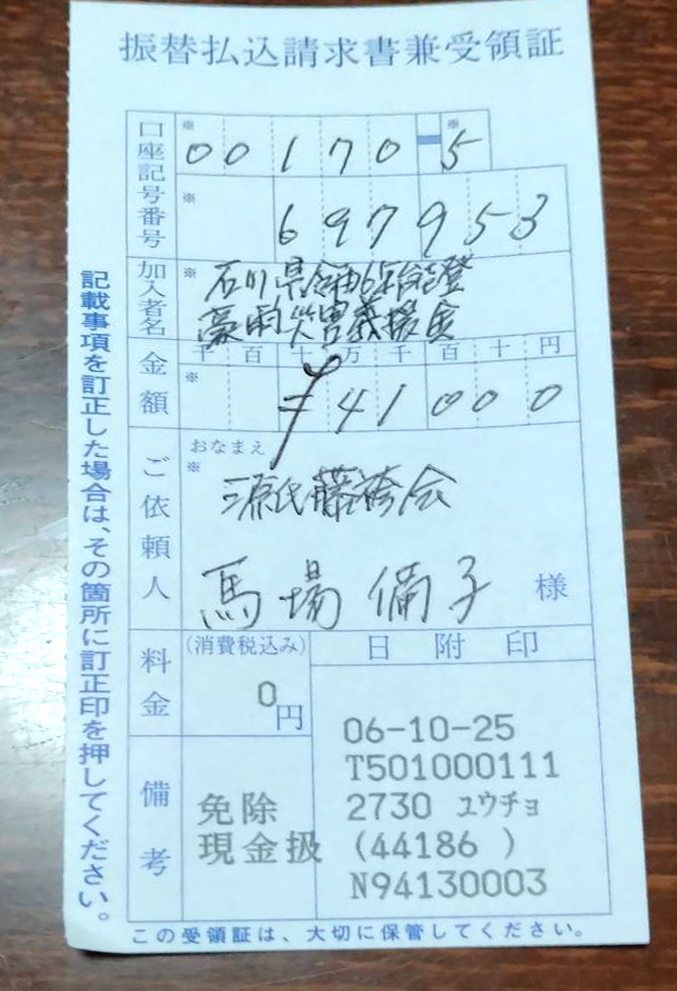 振替払込請求書兼受領証
口座記号番号
※ ※
00170-5
※
697953
加入者名
※
石川県令和6年能登
豪雨災害義援金
金額
千百十万千百十円
※
¥41000
ご依頼人
おなまえ
※
源氏藤袴会
馬場備子 様
料金
(消費税込み)
0円
日附印
06-10-25
T501000111
2730 ユウチョ
(44186 )
N94130003
備考
免除
現金扱
記載事項を訂正した場合は、その箇所に訂正印を押してください。
この受領証は、大切に保管してください。